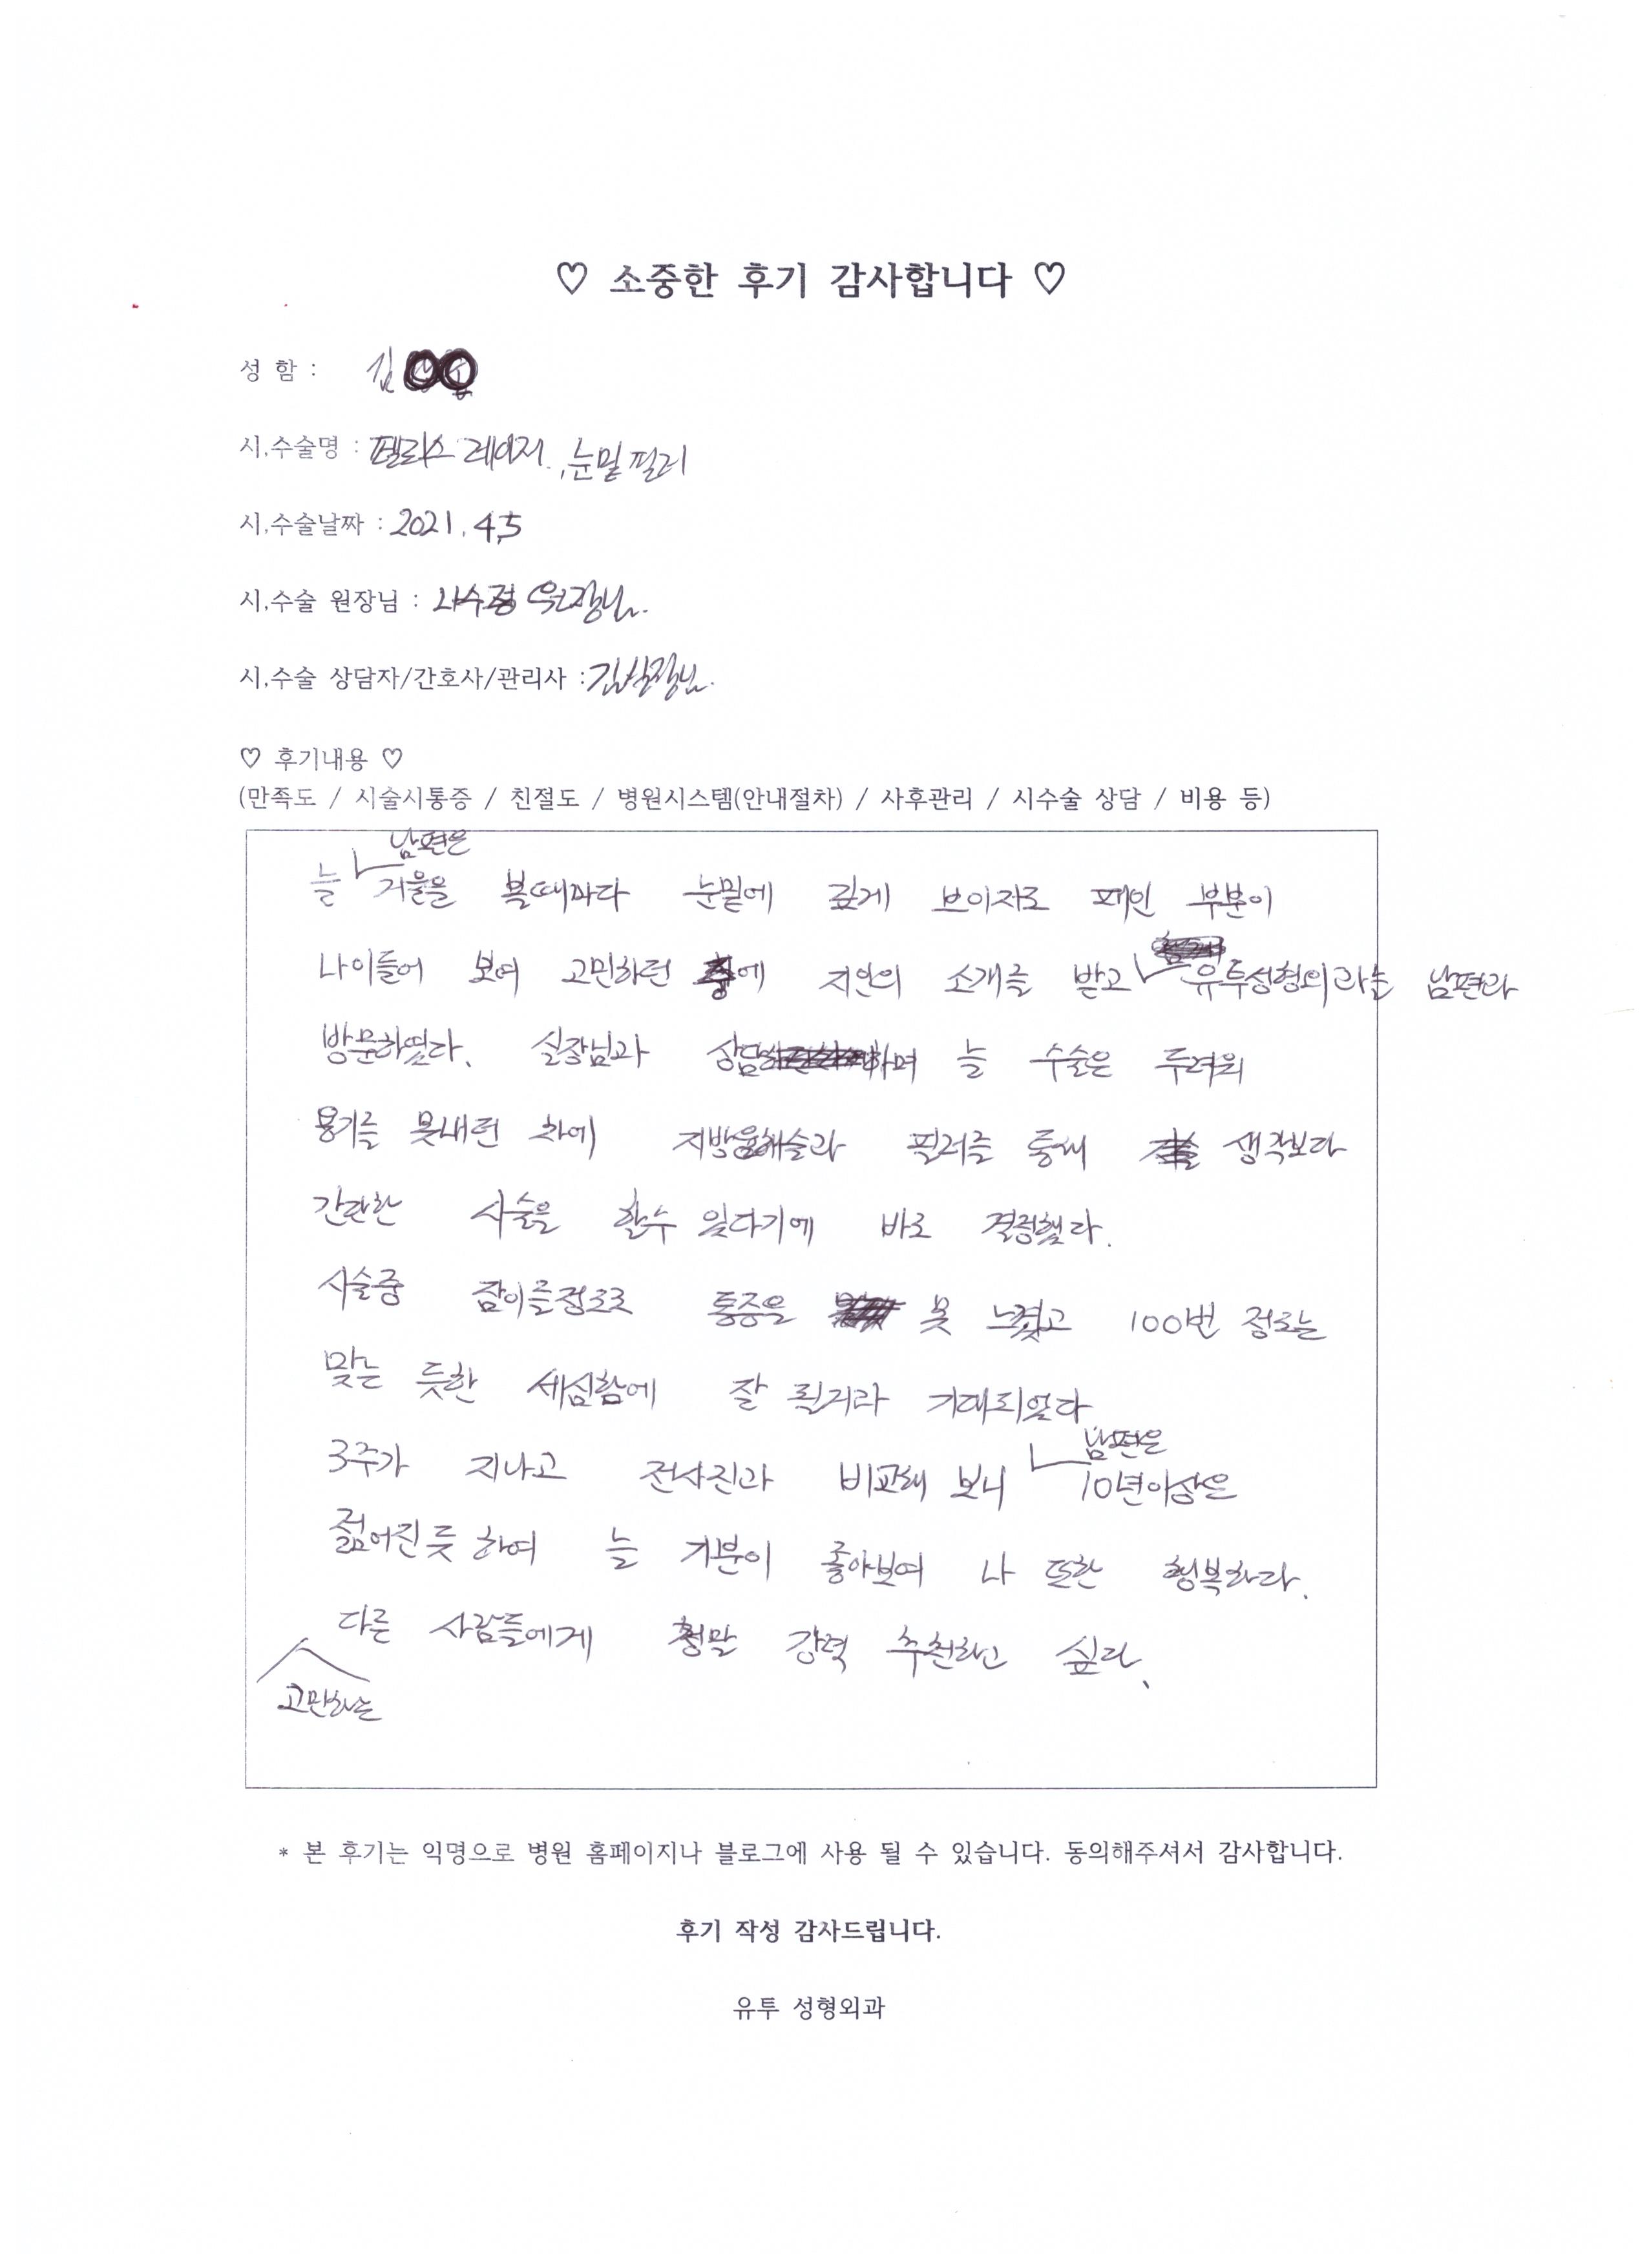 ♡ 소중한 후기 감사합니다 ♡
성 함 : 김
시,수술명 : 펠리스 레이저, 눈밑 필러
시,수술날짜 : 2021. 4.5
시,수술 원장님 : 나수정 원장님.
시,수술 상담자/간호사/관리사 : 김실장님.
♡ 후기내용 ♡
(만족도 / 시술시통증 / 친절도 / 병원시스템(안내절차) / 사후관리 / 시수술 상담 / 비용 등)
늘 남편은 거울을 볼때마다 눈밑에 깊게 보이자로 패인 부분이
나이들어 보여 고민하던 중에 지인의 소개를 받고 유투성형외과는 남편과
방문하였다. 실장님과 상담하며 늘 수술은 두려워
용기를 못내던 차에 지방용해술과 필러를 통해 생각보다
간단한 시술을 할수 있다기에 바로 결정했다.
시술중 잠이들정도로 통증을 못 느꼈고 100번 정도는
맞는 듯한 세심함에 잘 될거라 기대되었다
3주가 지나고 전사진과 비교해 보니 남편은 10년이상은
젊어진듯 하여 늘 기분이 좋아보여 나 또한 행복하다.
고민하는 다른 사람들에게 정말 강력 추천하고 싶다.
* 본 후기는 익명으로 병원 홈페이지나 블로그에 사용 될 수 있습니다. 동의해주셔서 감사합니다.
후기 작성 감사드립니다.
유투 성형외과